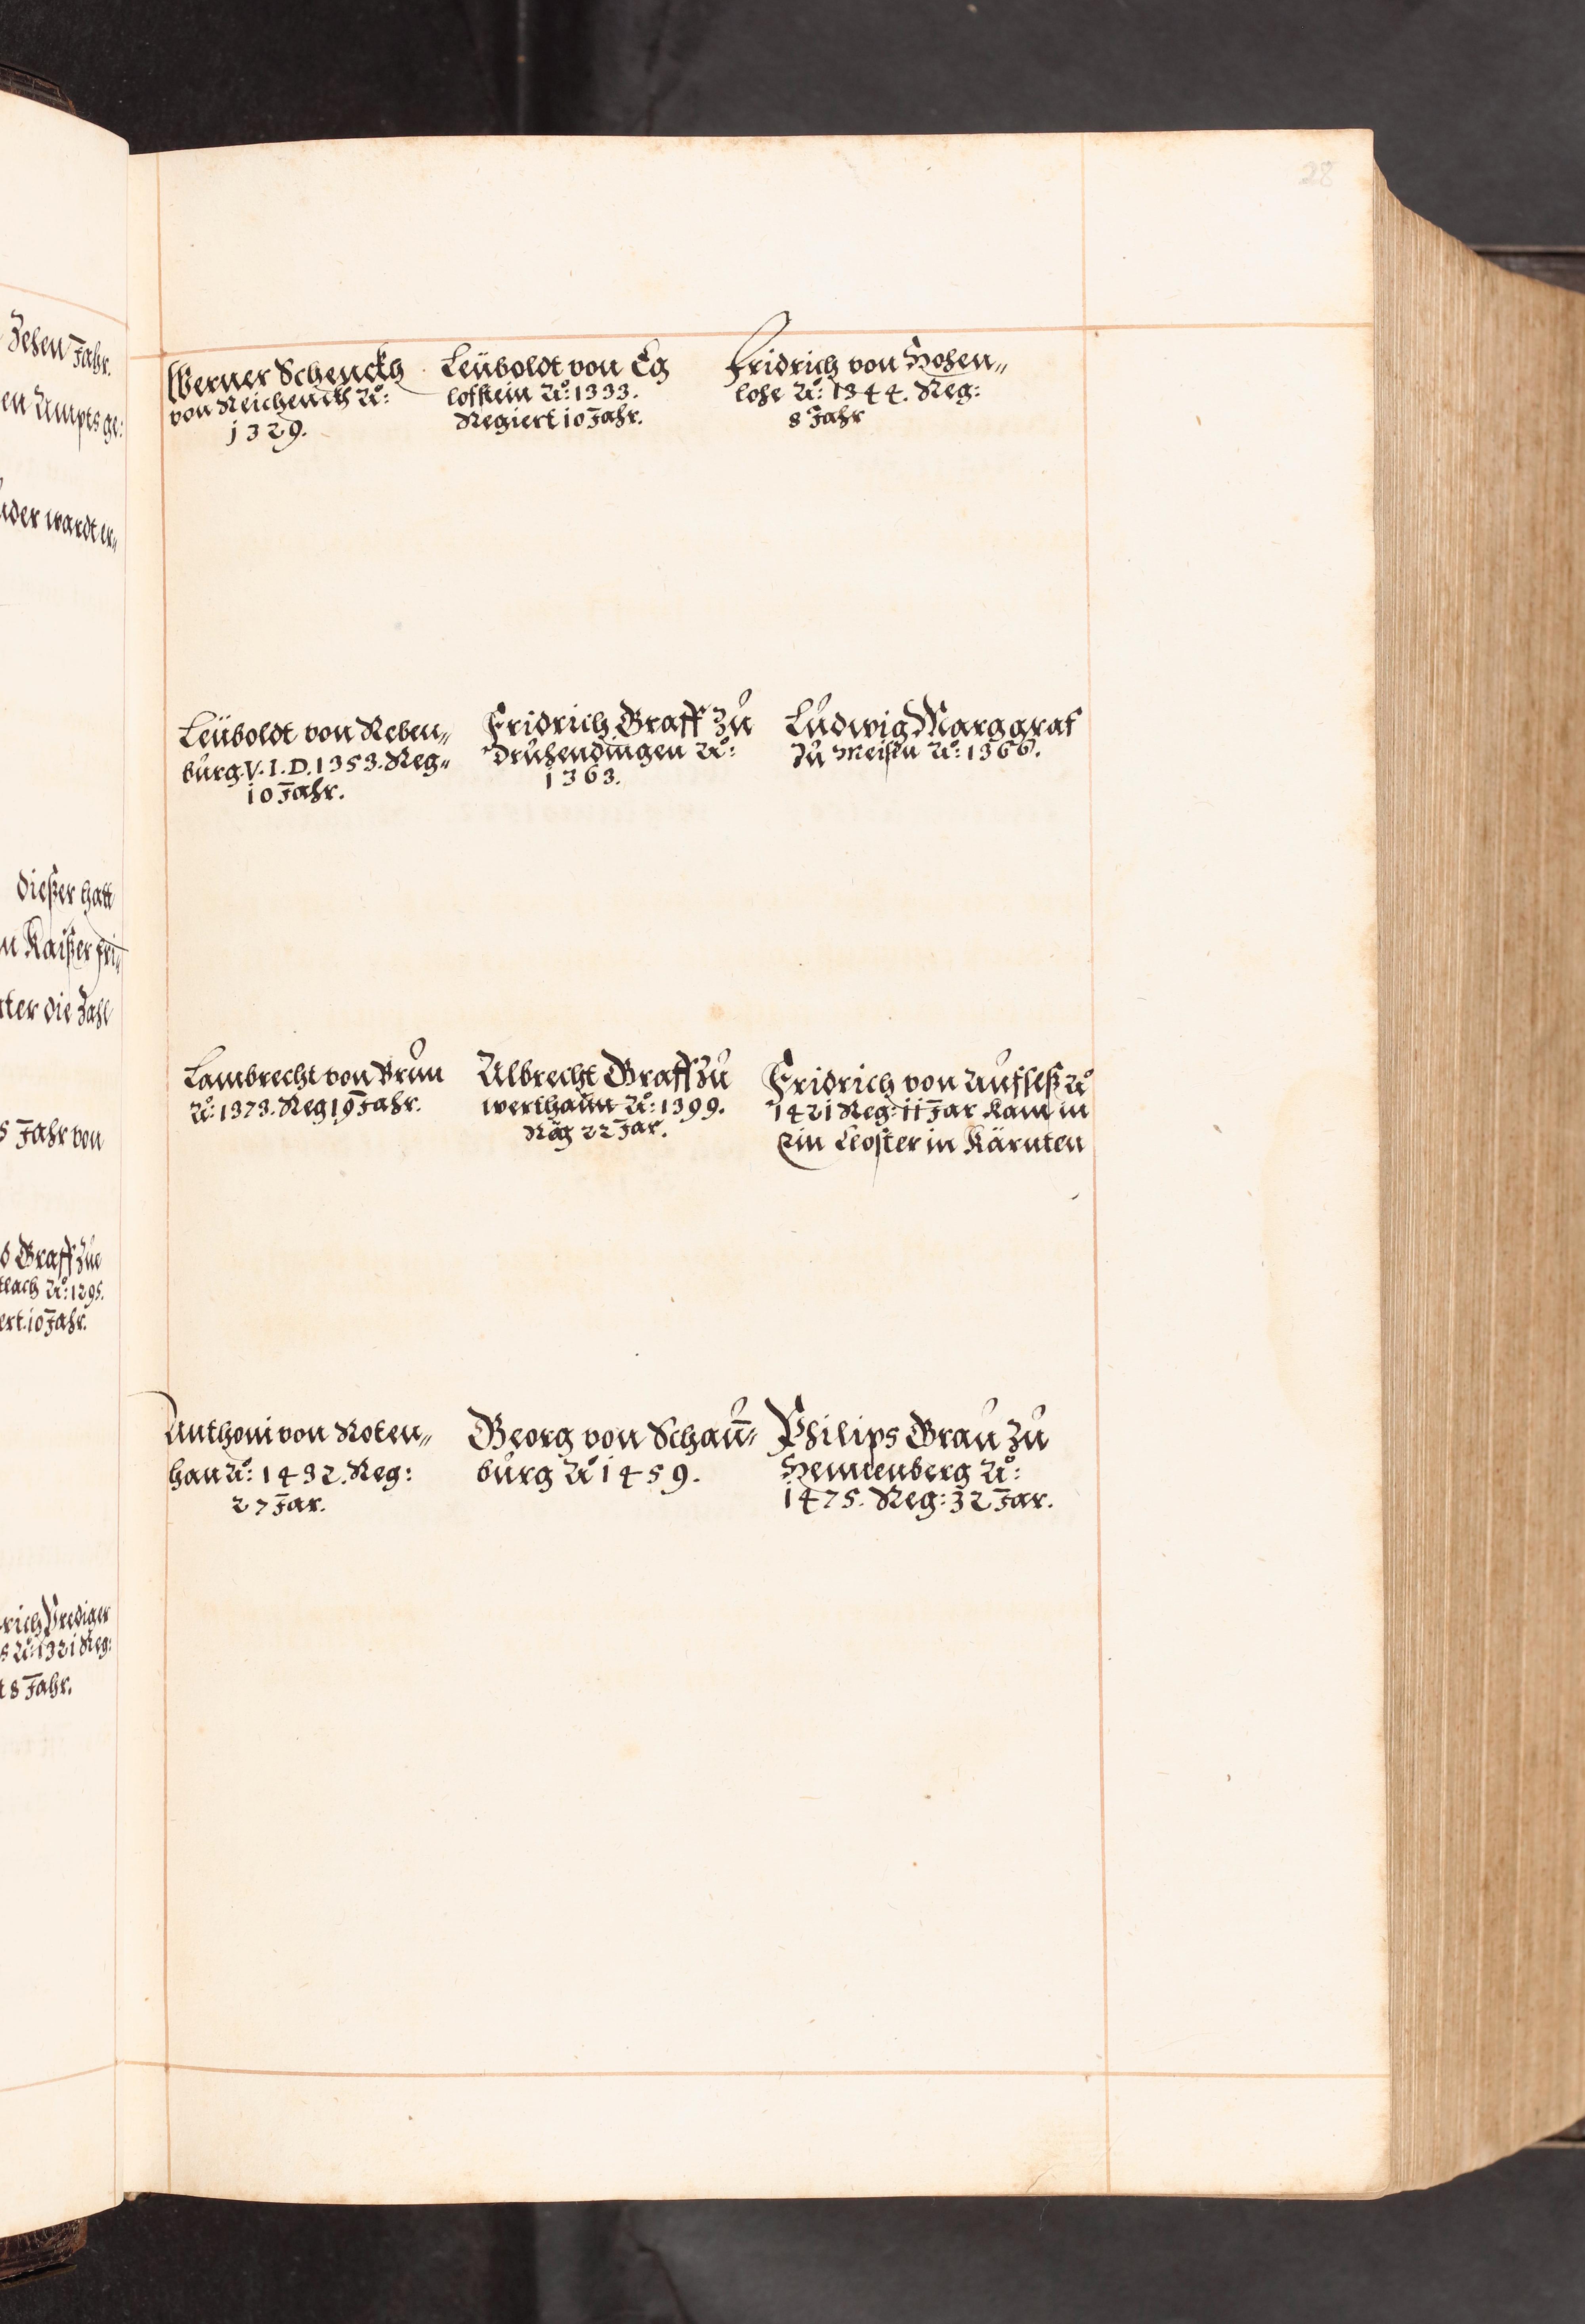 28
Zehen Jahr.
en Ampts ge:
uder wardt er„
Dießer hatt
n Kaißer Fri„
ter die Zahl
5 Jahr von
d Graff Zue
tlach Aº: 1295.
ert. 10 Jahr.
rich Prediger
s Aº: 1321 Reg:
t 8 Jahr.
Werner Schenckh
von Reicheneckh Aº:
1329.
Leüboldt von Eg
loffstein Aº: 1333.
Regiert 10 Jahr.
Fridrich von Hohen„
lohe Aº: 1344. Reg:
8 Jahr
Leüboldt von Reben„
burg. V. I. D. 1353. Reg„
10 Jahr.
Fridrich Graff Zu
Druhendingen Aº:
1363.
Ludwig Marggraf
Zu Meissn Aº: 1366.
Lambrecht von Brun
Aº: 1373. Reg 19 Jahr.
Albrecht Graff Zu
werthaim Aº: 1399.
Räg 22 Jar.
Fridrich von Aufseß Aº
1421 Reg: 11 Jar kam in
Ein Closter in Kärnten
Anthoni von Roten„
han Aº: 1432. Reg:
27 Jar.
Georg von Schaum„
burg Aº 1459.
Philips Grau Zu
Hennenberg Aº:
1475. Reg: 32 Jar.